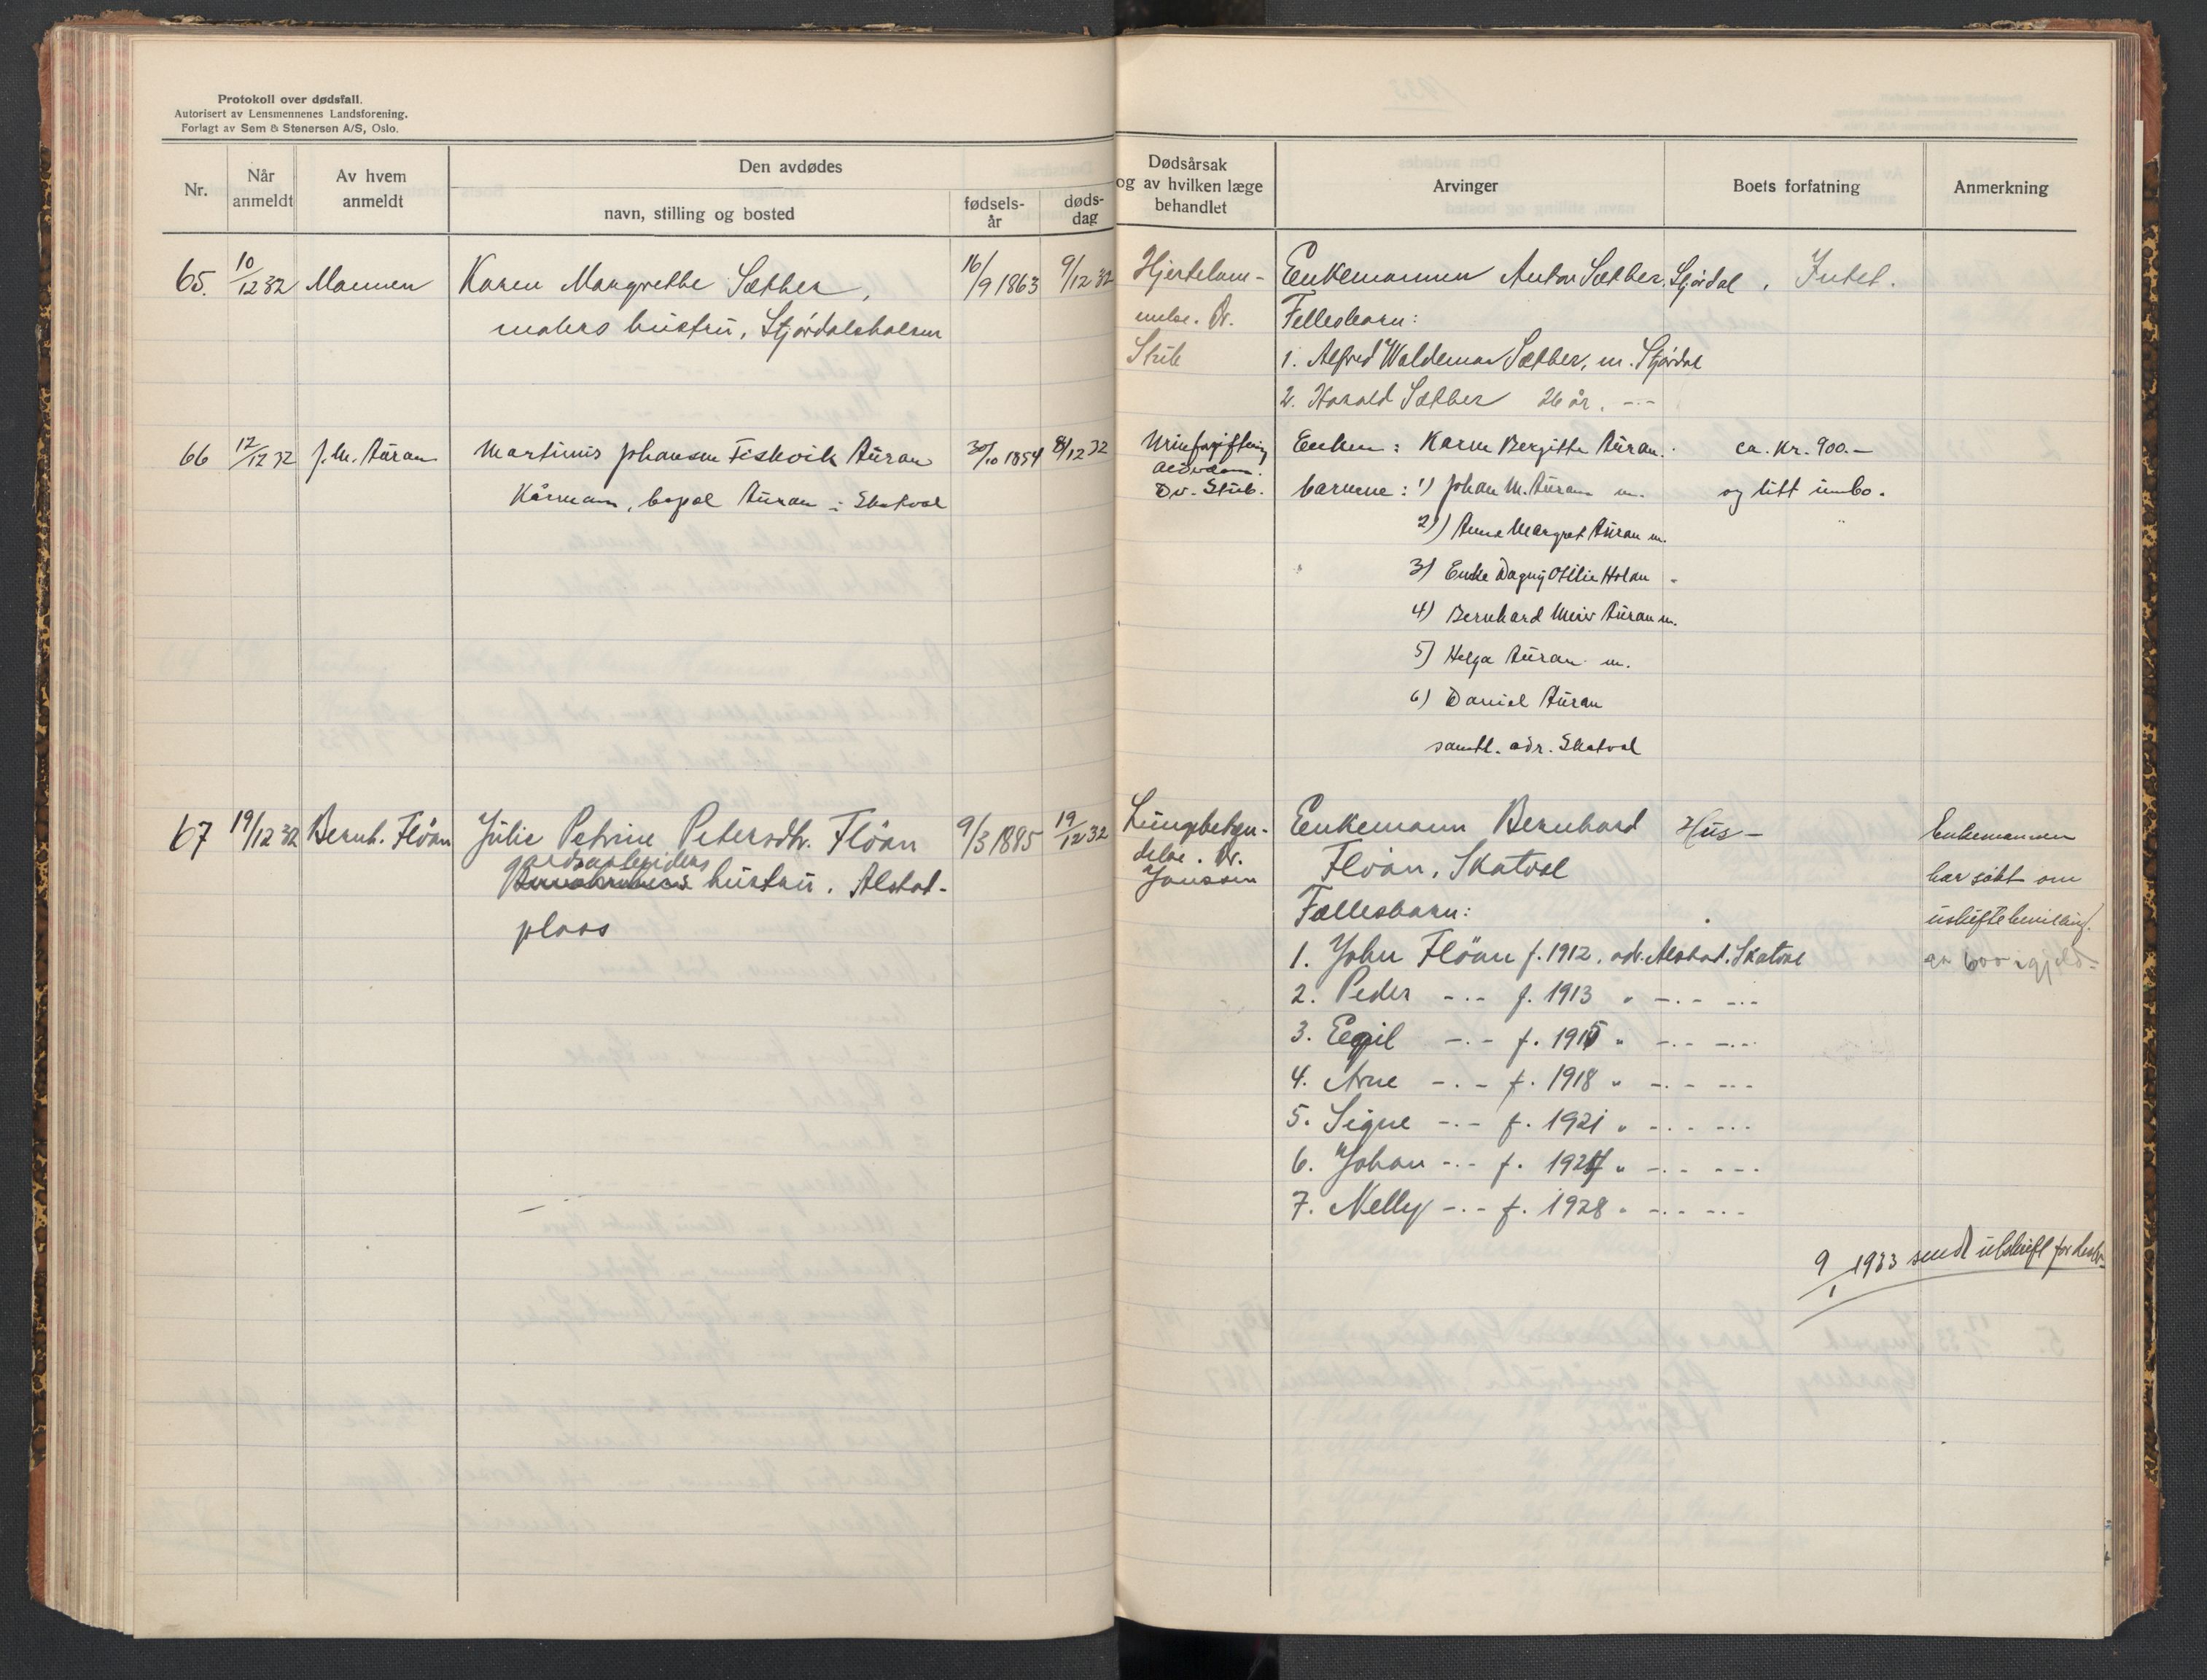 Protokoll over dødsfall.
Autorisert av Lensmennenes Landsforening.
Forlagt av Sem & Stenersen A/S, Oslo.
Nr.
Når anmeldt
Av hvem anmeldt
Den avdødes
navn, stilling og bosted
fødsels-år
døds-dag
Dødsårsak og av hvilken læge behandlet
Arvinger
Boets forfatning
Anmerkning
65. 10/12 32 Mannen Karen Margrethe Sæther, 16/9 1863 9/12 32
malers hustru, Stjørdalshalsen
Hjertelam-
melse. Dr.
Stub
Enkemannen Anton Sæther, Stjørdal, Intet.
Fellesbarn:
1. Alfred Waldemar Sæther, m. Stjørdal
2. Harald Sæther 26 år. -"-
66 12/12 32 J. M. Auran Martinus Johansen Fiskvik Auran 30/10 1854 8/12 32
Kårmann, bopel Auran i Skatval
Urinforgiftning
alderdom.
Dr. Stub.
Enken: Karen Bergitte Auran. ca. kr. 900.-
barnene: 1) Johan M. Auran m. og litt innbo.
2) Anna Margret Auran m.
3) Enke Dagny Otilie Holan "
4) Bernhard Auran m.
5) Helga Auran m.
6) Daniel Auran
samtl. adr. Skatval
67 19/12 32 Bernh. Flöan Julie Petrine Petersdtr. Flöan 9/3 1885 19/12 32
gardsarbeiders
hustru. Alstad-
plass
Lungebeten-
delse. Dr.
Janssen
Enkemann Bernhard Hus-
Flöan, Skatval
Fællesbarn:
1. John Flöan f. 1912. adr. Alstad. Skatval
2. Peder -"- f. 1913 " -"- -"-
3. Egil -"- f. 1915 " -"- -"-
4. Arne -"- f. 1918 " -"- -"-
5. Signe -"- f. 1921 " -"- -"-
6. Johan -"- f. 1924 " -"- -"-
7. Nelly -"- f. 1928 " -"- -"-
Enkemannen
har søkt om
uskiftebevilling.
ca 600 i gjeld-
9/1 1933 sendt utskrift for